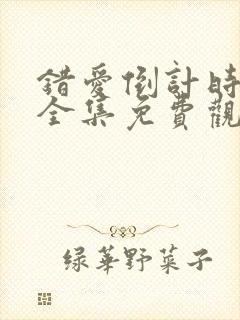 錯愛倒計時
全集免費觀
綠華野菜子